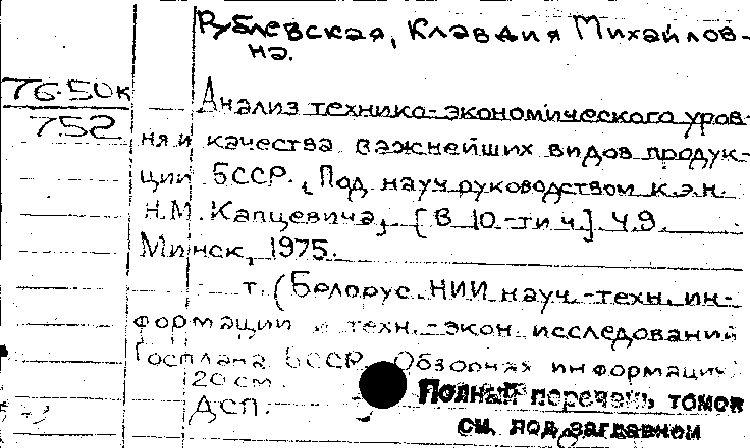 Рублевская, Клавдия Михайлов-
на.
76-50к
752
Анализ технико-экономического уров-
ня и качества важнейших видов продук-
ции БССР. Под науч. руководством к.э.н.
Н.М. Капцевича, [В 10-ти ч.]. Ч.9.
Минск, 1975.
т. (Белорус. НИИ науч.-техн. ин-
формации и техн.-экон. исследований
Госплана БССР. Обзорная информация
20 см.
ДСП.
Полный перечень томов
см. под заглавном